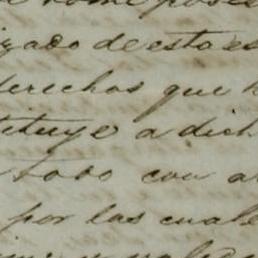 izado de esto es
derechos que
tituye a dich
todo con a
por los cuale